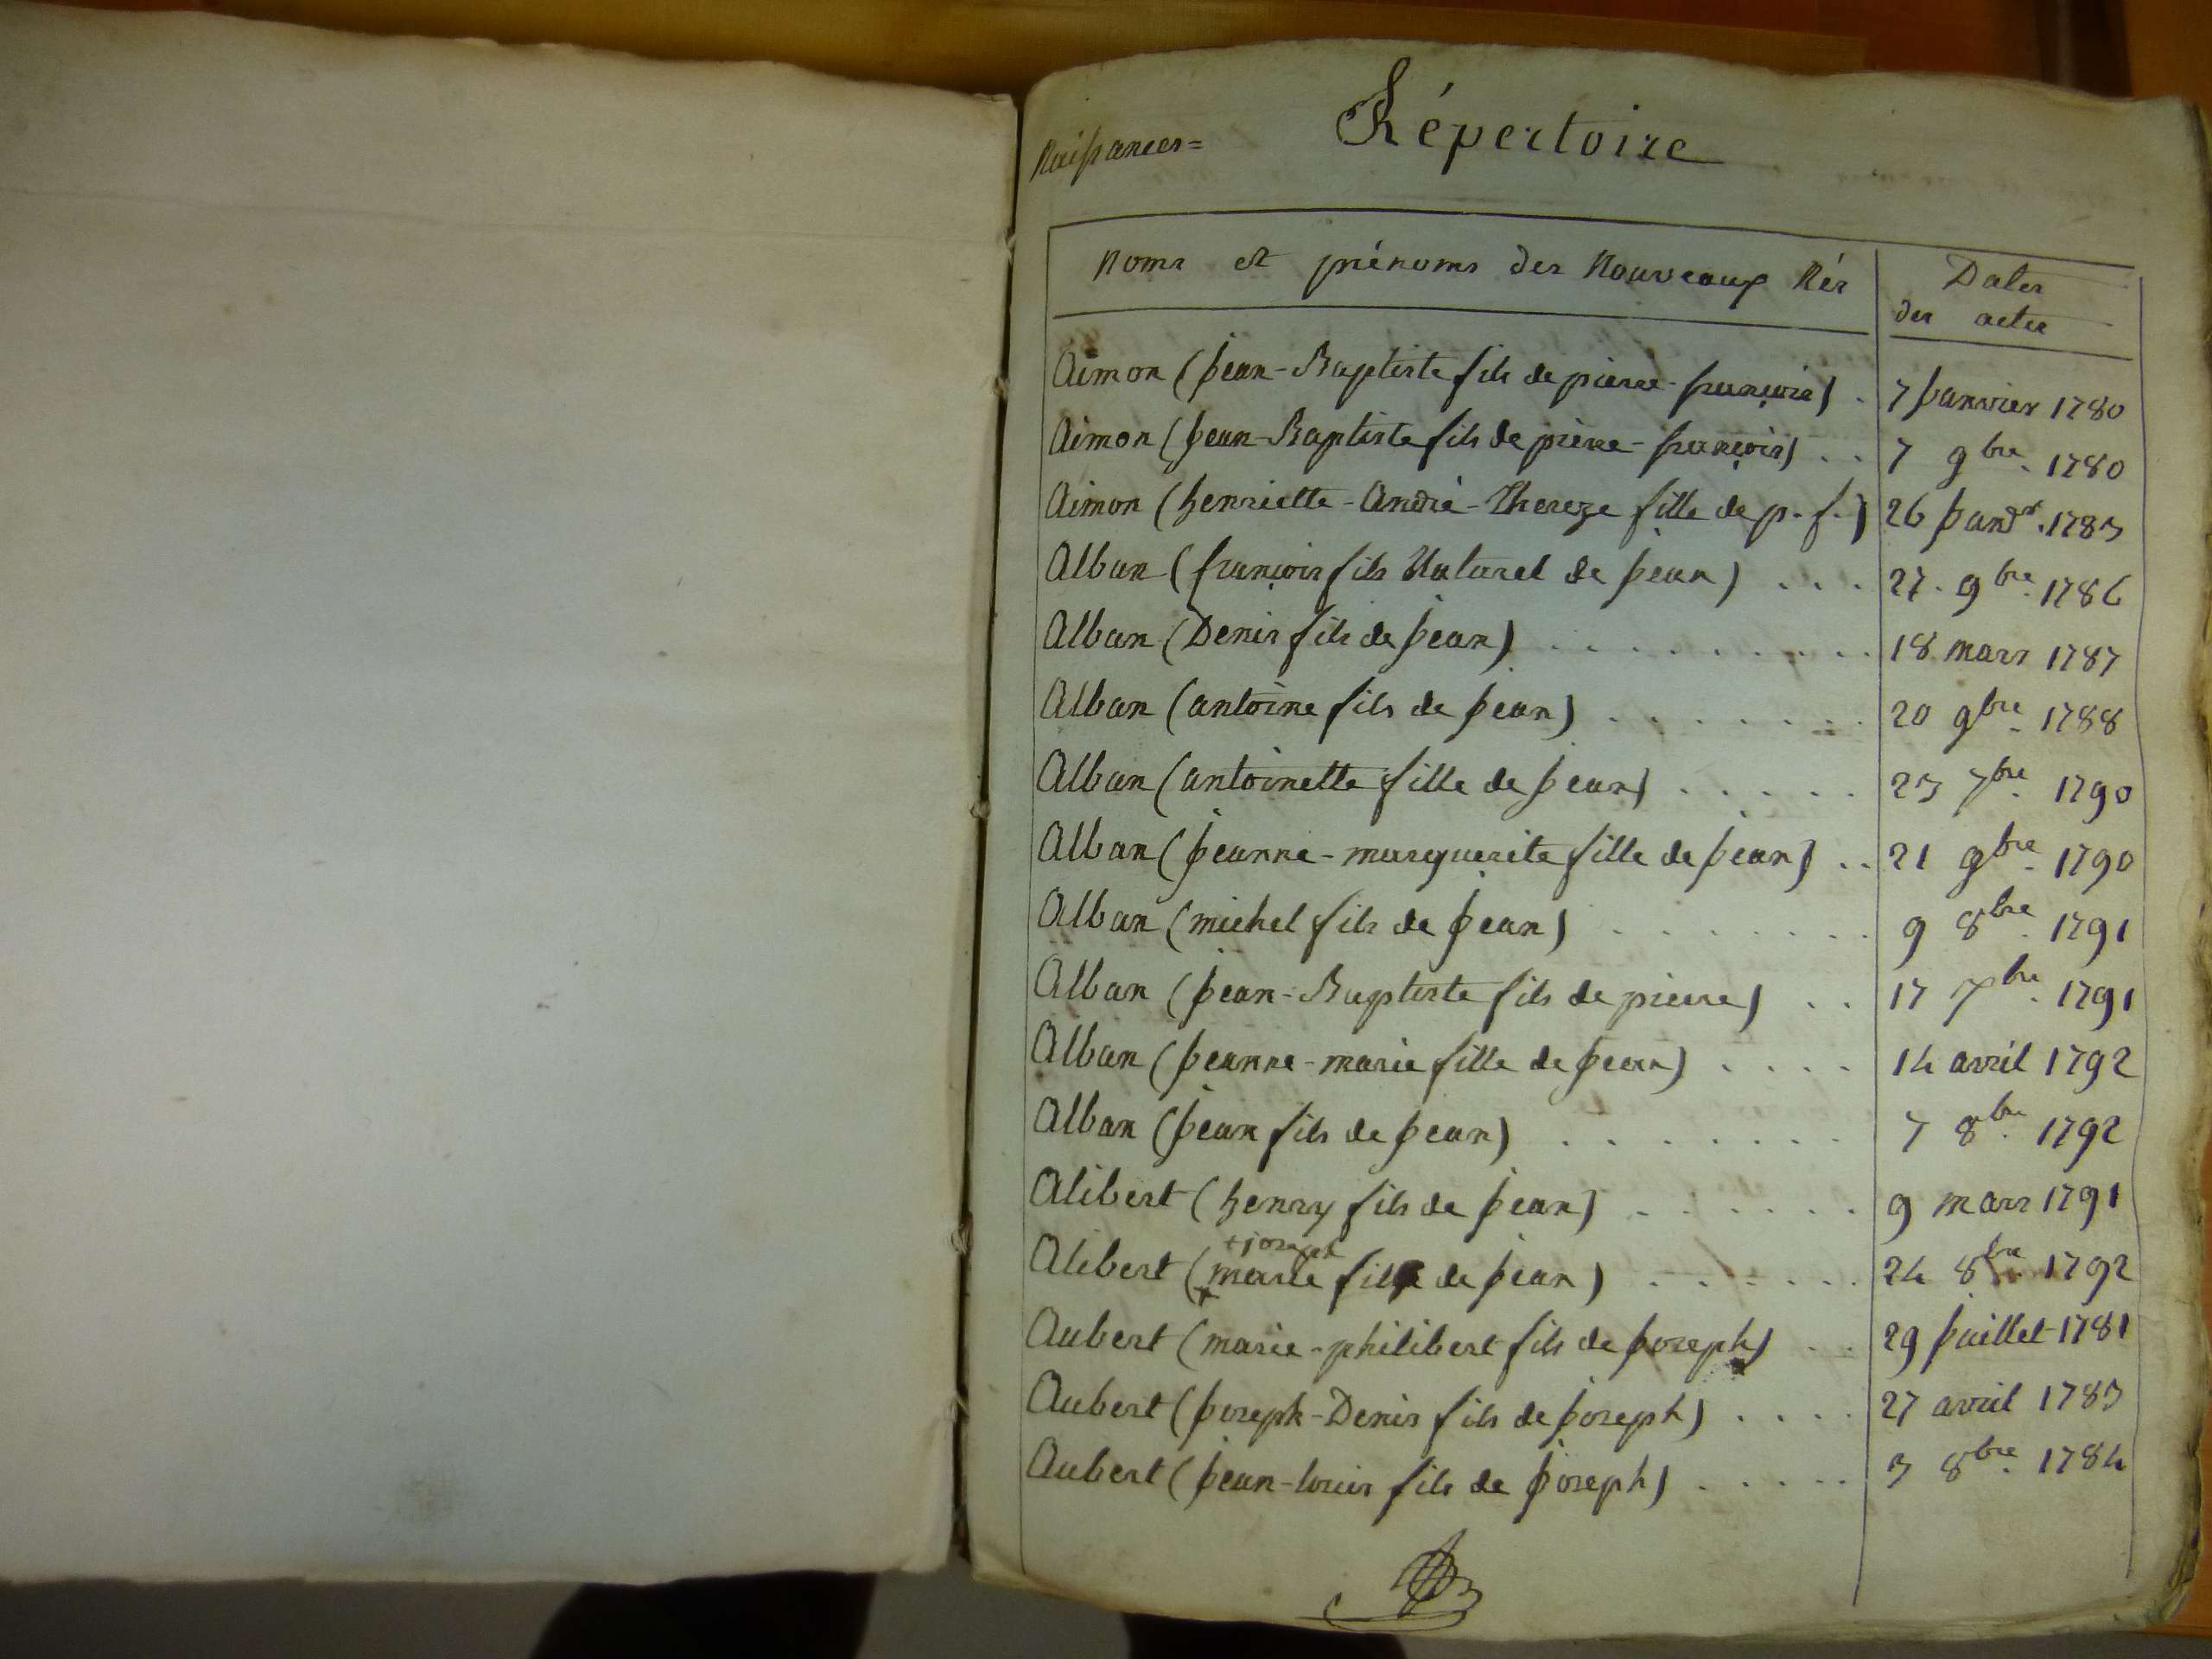 Naissances=
Répertoire
Noms et prénoms des Nouveaux Nés
Dates
des actes
Aimon (Jean-Baptiste fils de pierre-françois) . 7 Janvier 1780
Aimon (Jean-Baptiste fils de pierre-françois) . . 7 9bre. 1780
Aimon (henriette-André-Thereze fille de p. f.) 26 1783
Alban (françois fils Naturel de Jean) . . . 27. 9bre. 1786
Alban (Denis fils de Jean) . . . . . . . . . 18 mars 1787
Alban (antoine fils de Jean) . . . . . . . 20 9bre. 1788
Alban (antoinette fille de Jean) . . . . . 23 7bre. 1790
Alban (Jeanne-marguerite fille de Jean) . . 21 9bre. 1790
Alban (michel fils de Jean) . . . . . . . 9 8bre. 1791
Alban (Jean-Baptiste fils de pierre) . . 17 7bre. 1791
Alban (Jeanne-marie fille de Jean) . . . . 14 avril 1792
Alban (Jean fils de Jean) . . . . . . . 7 8bre. 1792
Alibert (henry fils de Jean) . . . . . . 9 mars 1791
+joseph
Alibert (marie fils de Jean) . . . . . . 24 8bre. 1792
Aubert (marie-philibert fils de Joseph) . . 29 Juillet 1781
Aubert (Joseph-Denis fils de Joseph) . . . . 27 avril 1783
Aubert (Jean-louis fils de Joseph) . . . . . 3 8bre. 1784